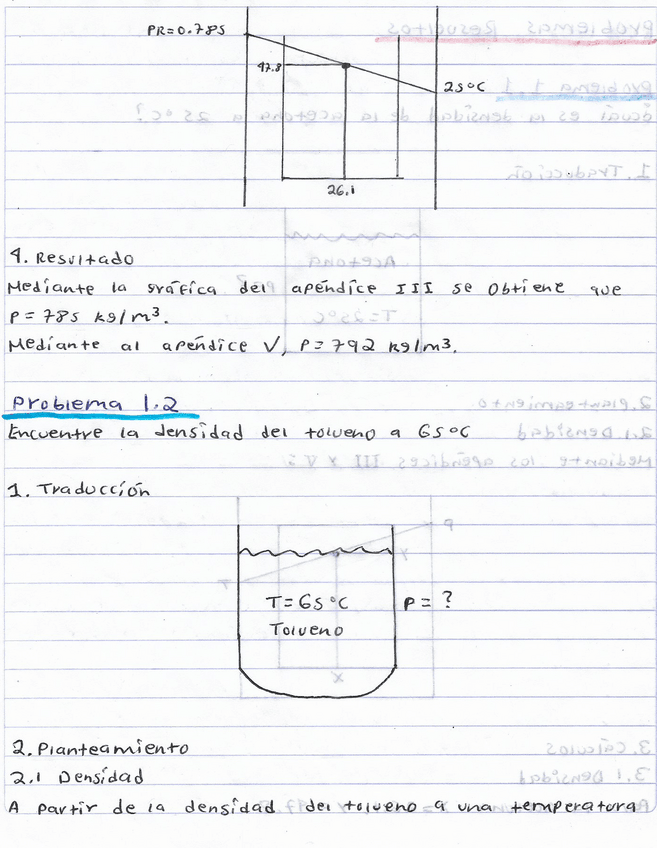 PR=0.785
47.8
25°C
26.1
4. Resultado
Mediante la gráfica del apéndice III se obtiene que
ρ=785 kg/m³.
Mediante al apéndice V, ρ=792 kg/m³.
Problema 1.2
Encuentre la densidad del tolueno a 65°C
1. Traducción
T=65°C ρ=?
Tolueno
2. Planteamiento
2.1 Densidad
A partir de la densidad del tolueno a una temperatura